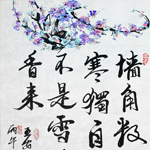 墙角数
寒獨自
不是雪
香来